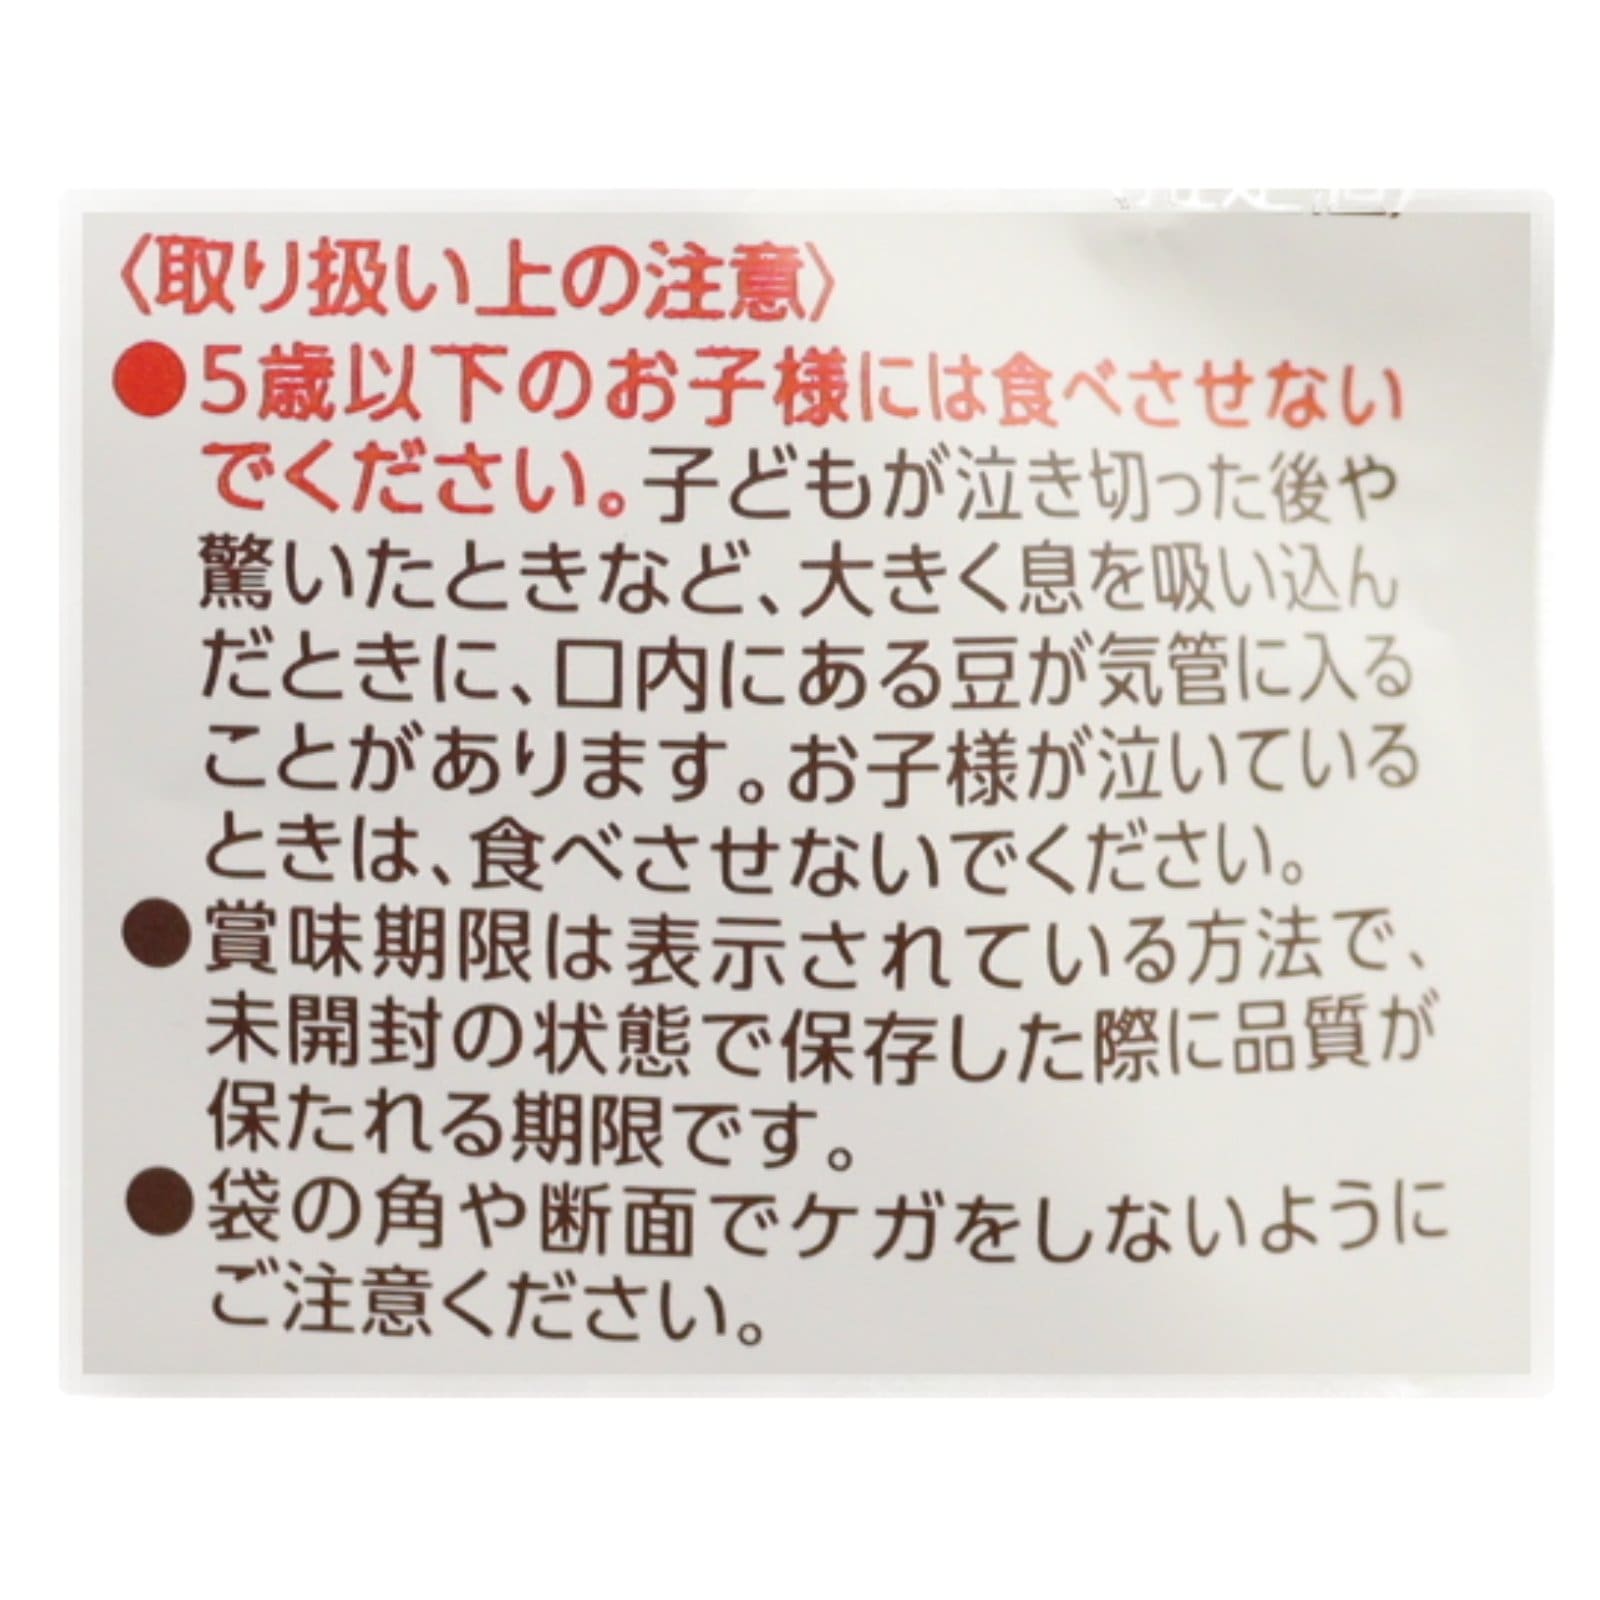 〈取り扱い上の注意〉
●5歳以下のお子様には食べさせない
でください。子どもが泣き切った後や
驚いたときなど、大きく息を吸い込ん
だときに、口内にある豆が気管に入る
ことがあります。お子様が泣いている
ときは、食べさせないでください。
●賞味期限は表示されている方法で、
未開封の状態で保存した際に品質が
保たれる期限です。
●袋の角や断面でケガをしないように
ご注意ください。